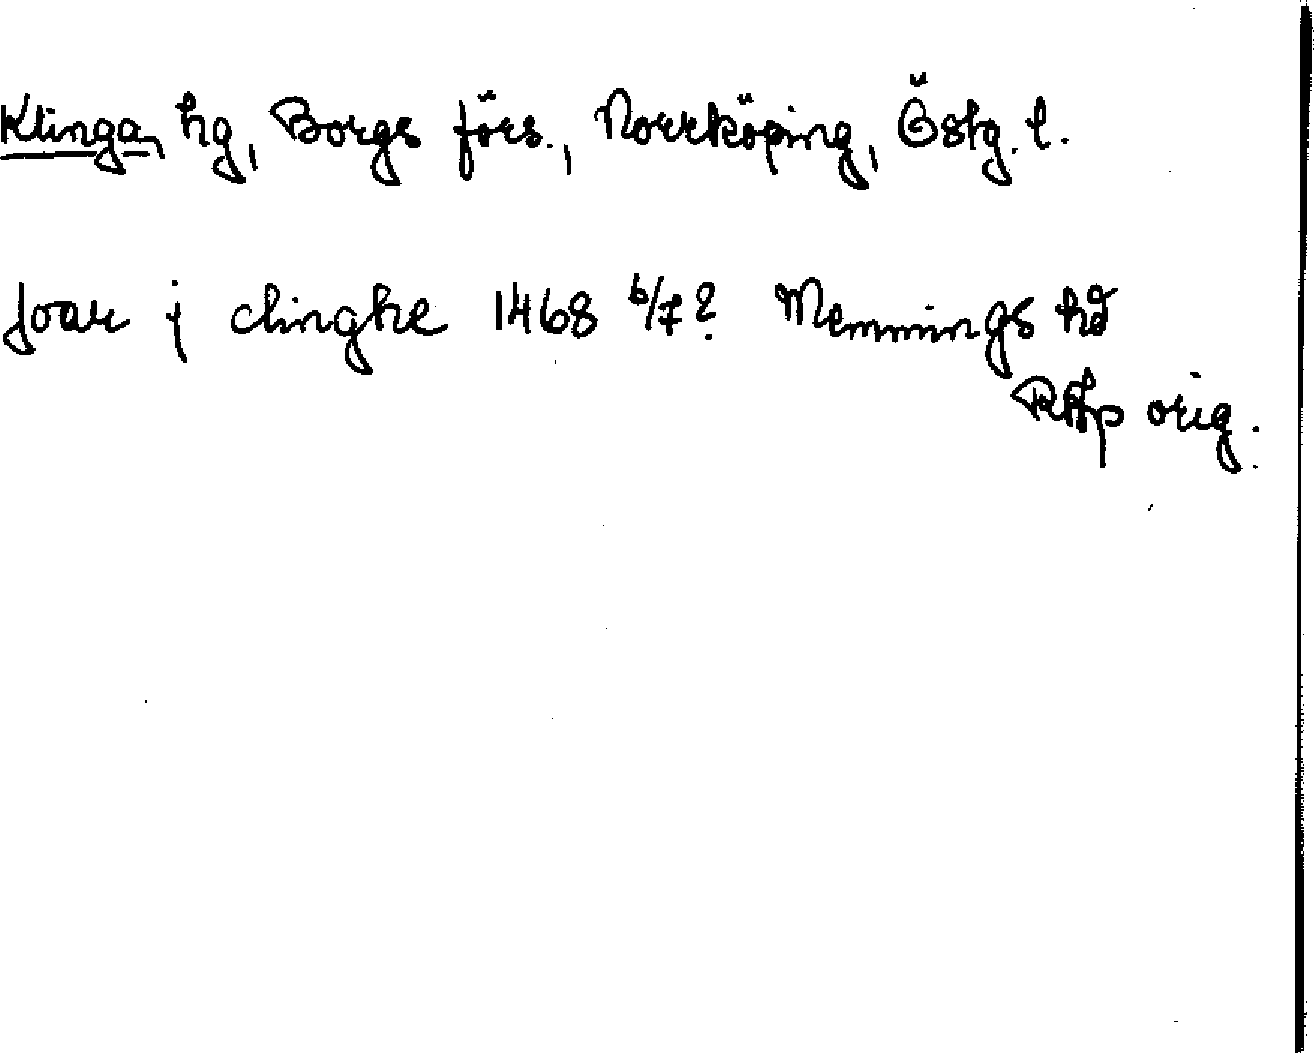 Klinga, hg, Borgs förs., Norrköping, Östg. l.
Joar j clinghe 1468 6/7? Memmings hd
RAp orig.